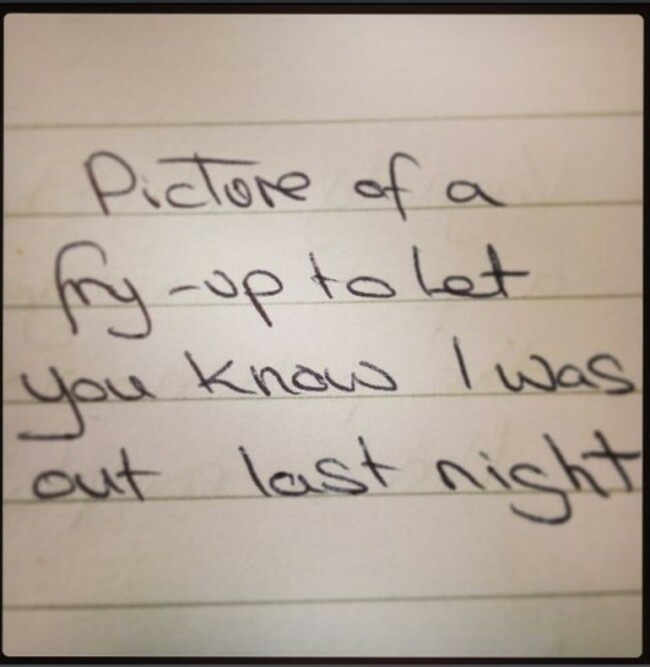 Picture of a
fry-up to let
you know I was
out last night